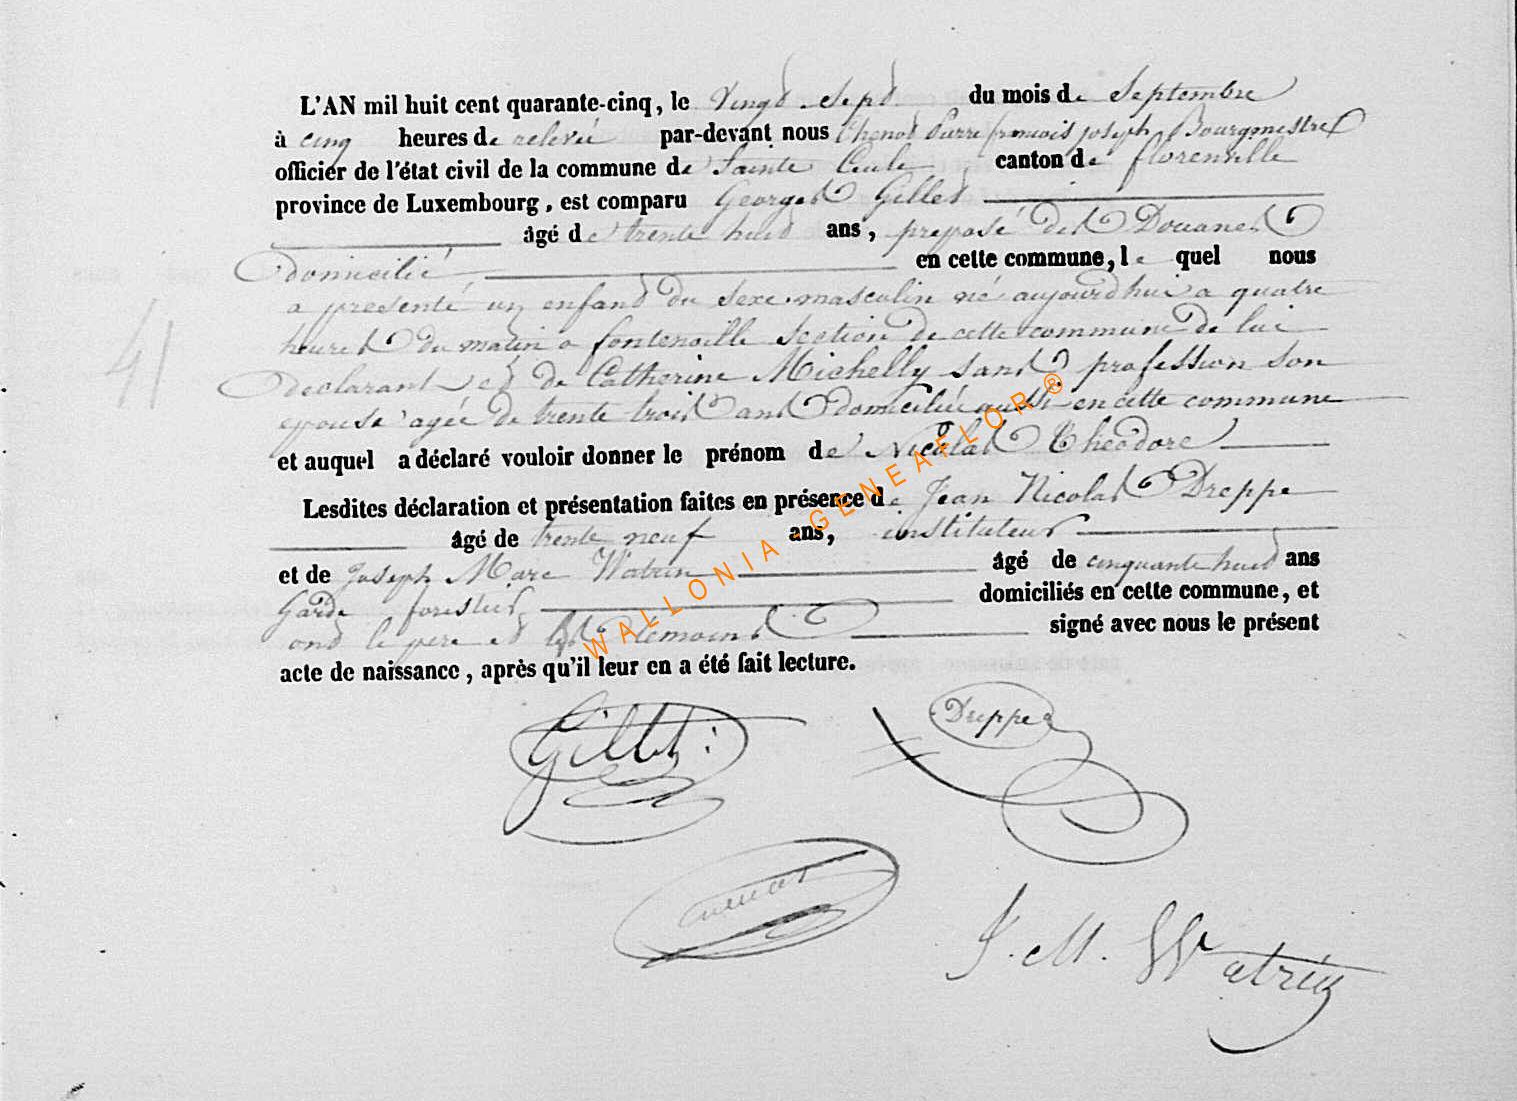 L'AN mil huit cent quarante-cinq, le vingt sept du mois de Septembre
à cinq heures de relevée par-devant nous thenot Pierre françois joseph Bourgmestre
officier de l'état civil de la commune de Sainte Cecile canton de florenville
province de Luxembourg, est comparu Georges Gilles
âgé de trente huit ans, preposé des Douanes
domicilié en cette commune, le quel nous
a presenté un enfant du sexe masculin né aujourdhui a quatre
heures du matin a fontenoille section de cette commune de lui
declarant et de Catherine Michelly sans profession son
epouse agée de trente trois ans domiciliée aussi en cette commune
et auquel a déclaré vouloir donner le prénom de Nicolas Théodore
Lesdites déclaration et présentation faites en présence de Jean Nicolas Dreppe
âgé de trente neuf ans, instituteur
et de Joseph Marc Watrin âgé de cinquante huit ans
Garde forestier domiciliés en cette commune, et
ont le pere et les temoins signé avec nous le présent
acte de naissance, après qu'il leur en a été fait lecture.
41
WALLONIA-GENEAFLOR®
Gilles
Dreppe
J. M. Watrin